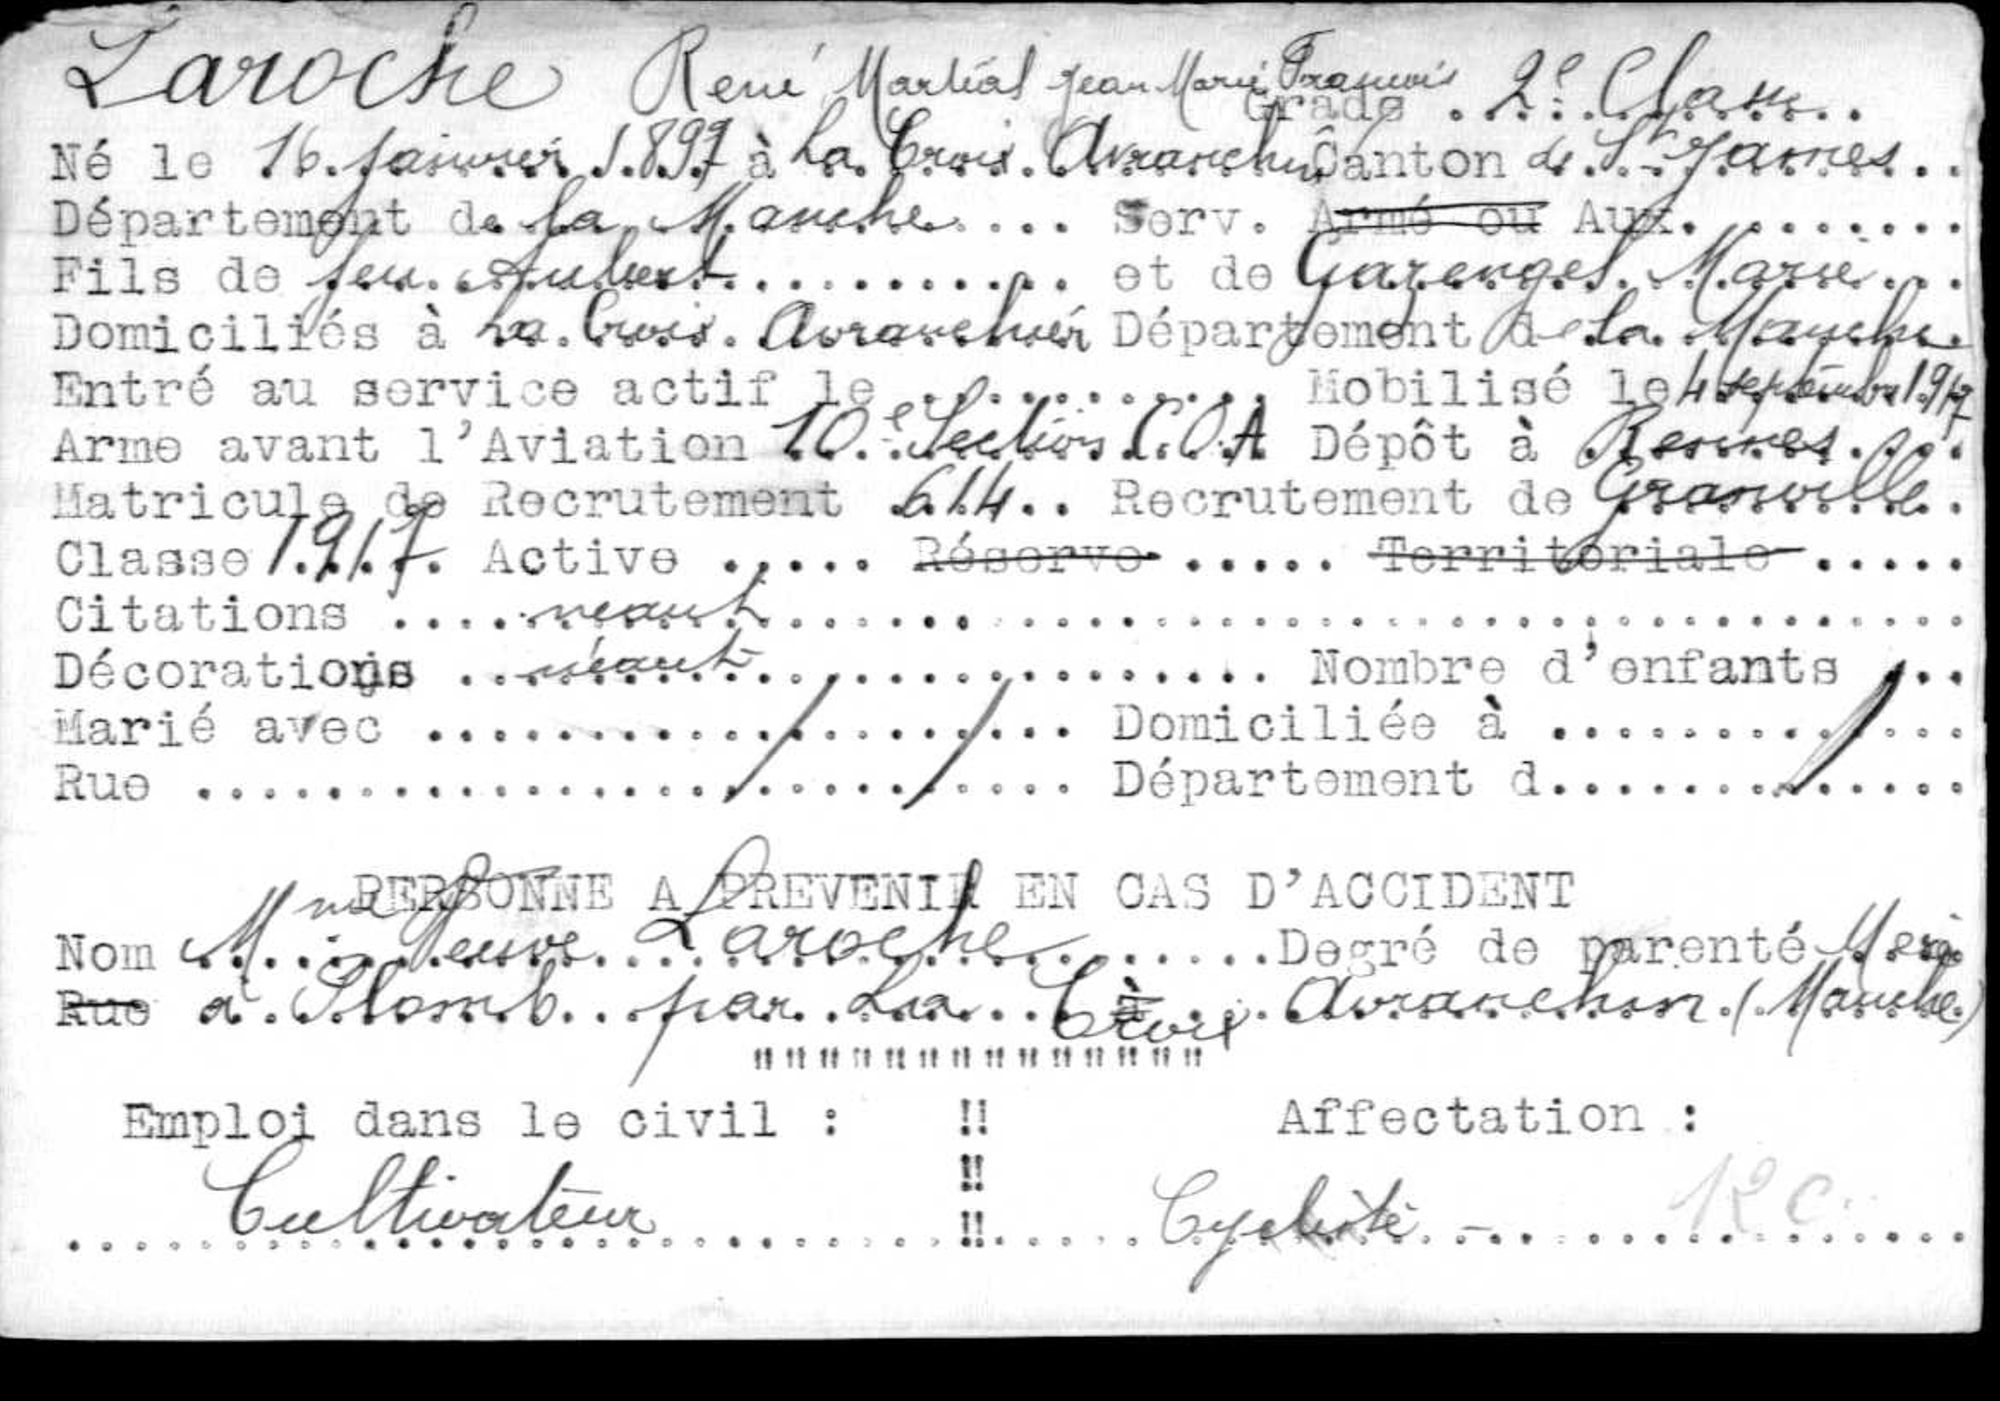 Laroche René Martial Jean Marie François Grade . 2e Classe
Né le 16 Janvier 1897 à La Croix Avranchin Canton de St James
Département de la Manche Serv. ~~Armé ou~~ Aux.
Fils de feu Aubert et de Garengel Marie
Domiciliés à La Croix Avranchin Département de la Manche
Entré au service actif le Mobilisé le 4 septembre 1917
Arme avant l'Aviation 10e Section C.O.A Dépôt à Rennes
Matricule de Recrutement 614 Recrutement de Granville
Classe 1917 Active ..... ~~Réserve~~ ..... ~~Territoriale~~ .....
Citations .... néant
Décorations .. néant Nombre d'enfants
Marié avec Domiciliée à
Rue Département d
PERSONNE A PREVENIR EN CAS D'ACCIDENT
Nom Mme Veuve Laroche Degré de parenté Mère
~~Rue~~ à Plomb par La Croix ~~à~~ Avranchin (Manche)
Emploi dans le civil : !! Affectation :
!!
Cultivateur !! Cycliste -